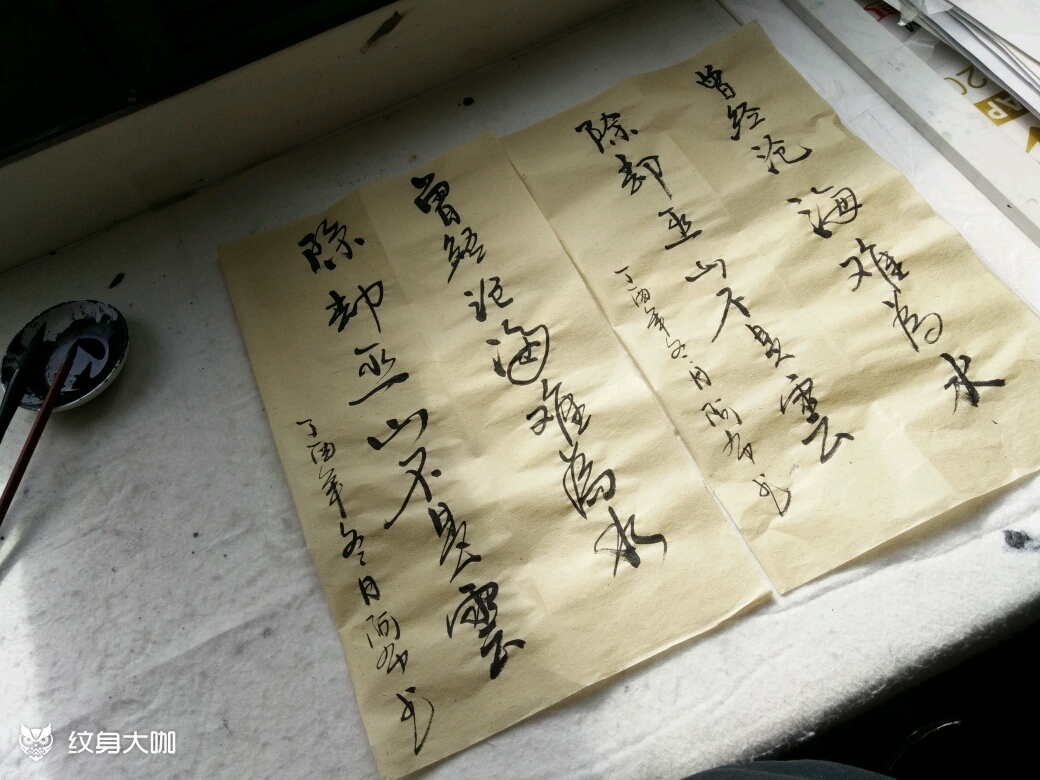 曾经沧海难為水
除却巫山不是雲
丁酉年冬月阿
曾經沧海难為水
除却巫山不是雲
丁酉年冬月阿
纹身大咖